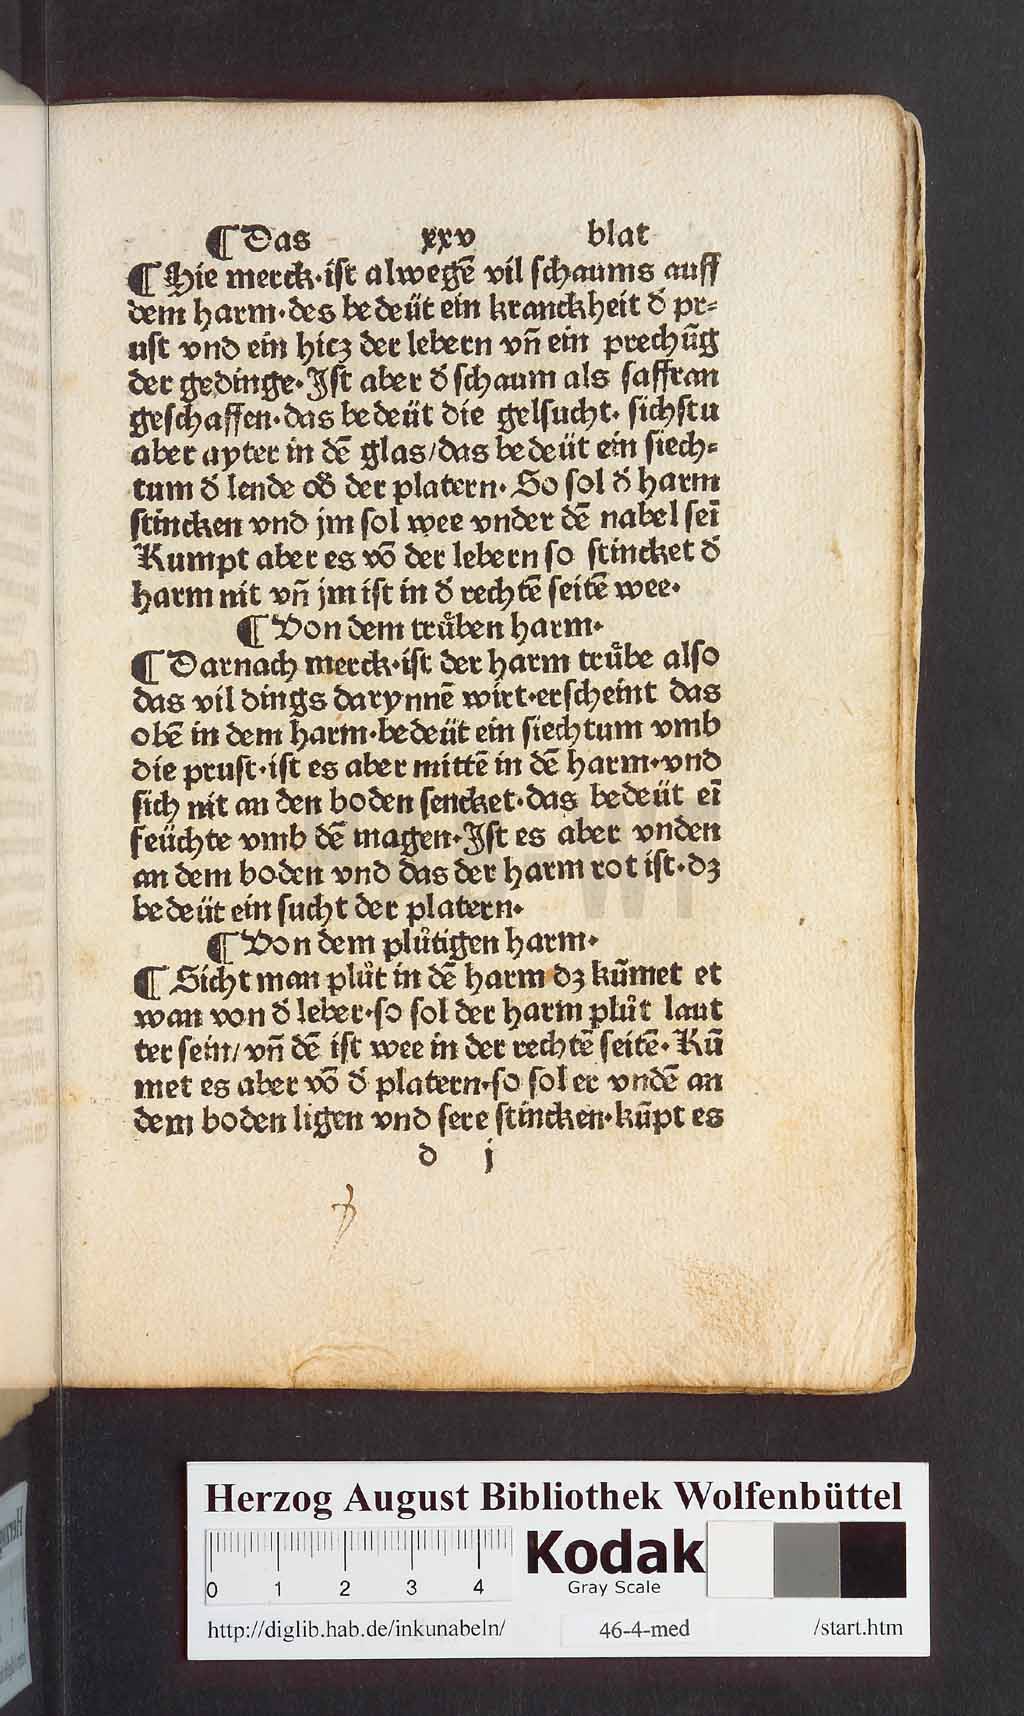 ¶ Das xxv blat
¶ Hie merck·ist alwegē vil schaums auff
dem harm·des bedeüt ein kranckheit d̄ pr⸗
ust vnd ein hicz der lebern vn̄ ein prechūg
der gedinge·Ist aber d̄ schaum als saffran
geschaffen·das bedeüt die gelsucht· sichstu
aber ayter in dē glas/das bedeüt ein siech⸗
tum d̄ lende od̄ der platern· So sol d̄ harm
stincken vnd jm sol wee vnder dē nabel seī
Kumpt aber es vō der lebern so stincket d̄
harm nit vn̄ jm ist in d̄ rechtē seitē wee·
¶ Von dem truͤben harm·
¶ Darnach merck·ist der harm truͤbe also
das vil dings darynnē wirt·erscheint das
obē in dem harm·bedeüt ein siechtum vmb
die prust·ist es aber mittē in dē harm·vnd
sich nit an den boden sencket·das bedeüt eī
feüchte vmb dē magen·Ist es aber vnden
an dem boden vnd das der harm rot ist·dz
bedeüt ein sucht der platern·
¶ Von dem pluͦtigen harm·
¶ Sicht man pluͦt in dē harm dz kūmet et
wan von d̄ leber·so sol der harm pluͦt laut
ter sein/vn̄ dē ist wee in der rechtē seitē· Kū
met es aber vō d̄ platern·so sol er vndē an
dem boden ligen vnd sere stincken·kūpt es
d j
Herzog August Bibliothek Wolfenbüttel
0 1 2 3 4
Kodak
Gray Scale
http://diglib.hab.de/inkunabeln/ 46-4-med /start.htm